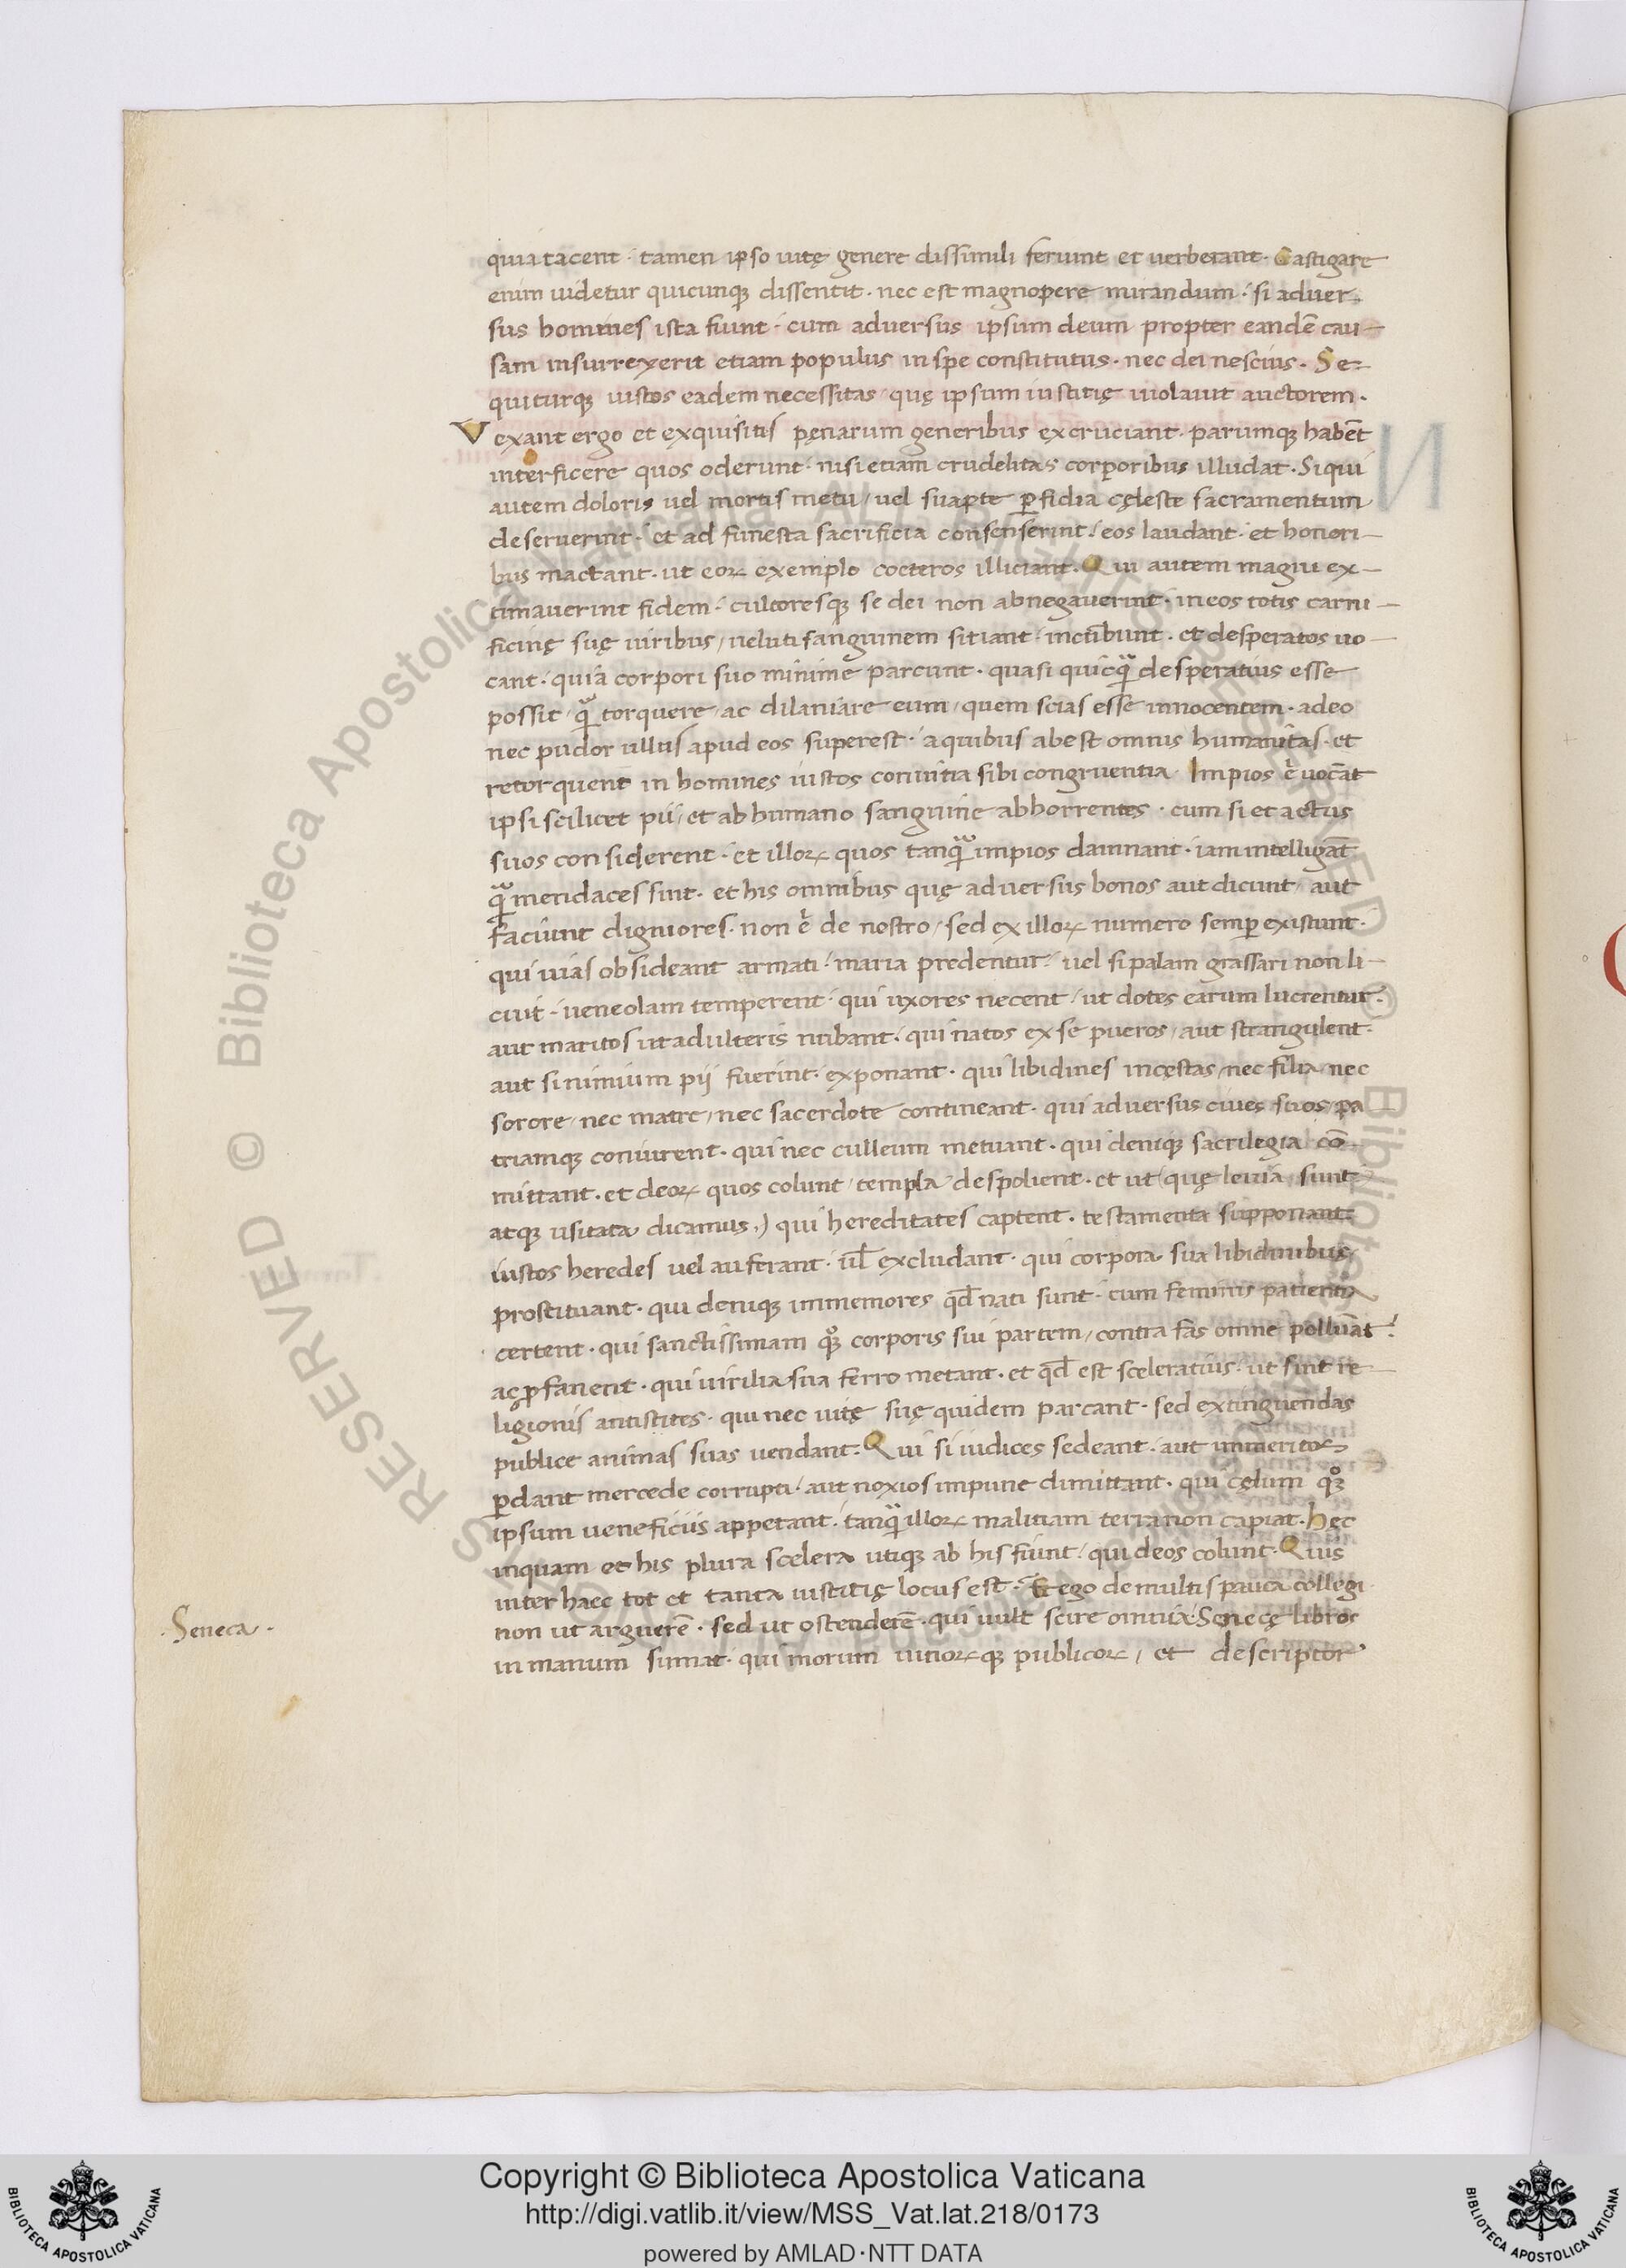 quia tacent · tamen ipso uitę genere dissimili feriunt et uerberant · Castigare
enim uidetur quicunq; dissentit · nec est magnopere mirandum · si aduer-
sus homines ista fiunt · cum aduersus ipsum deum propter eandē cau-
sam insurrexerit etiam populus in spe constitutus · nec dei nescius · Se-
quiturq; iustos eadem necessitas / quę ipsum iustitię uiolauit auctorem ·
Vexant ergo et exquisitis pęnarum generibus excruciant · parumq; habēt
interficere quos oderunt · nisi etiam crudelitas corporibus illudat · Si qui
autem doloris uel mortis metu / uel suapte ꝑfidia cęleste sacramentum
deseruerint · et ad funesta sacrificia consenserint · eos laudant · et honori-
bus mactant · ut eoꝝ exemplo cocteros illiciant · Qui autem magni ex-
timauerint fidem · cultoresq; se dei non abnegauerint · in eos totis carni-
ficinę suę uiribus / ueluti sanguinem sitiant · incūbunt · et desperatos uo-
cant · quia corpori suo minime parcunt · quasi quicq̃ desperatius esse
possit / q̃ torquere / ac dilaniare eum / quem scias esse innocentem · adeo
nec pudor ullus apud eos superest · a quibus abest omnis humanitas · et
retorquent in homines iustos conuitia sibi congruentia · Impios .n. uocāt
ipsi scilicet pii / et ab humano sanguine abhorrentes · cum si et actus
suos considerent · et illoꝝ quos tanq̃ impios damnant · iam intelligāt
q̃ mendaces sint · et his omnibus quę aduersus bonos aut dicunt / aut
faciunt digniores · non .n. de nostro / sed ex illoꝝ numero semꝑ existunt ·
qui uias obsideant armati · maria predentur · uel si palam grassari non li-
cuit · ueneolam temperent · qui uxores necent / ut dotes earum lucrentur ·
aut maritos ut adulteris nubant · qui natos ex se pueros / aut strangulent ·
aut si nimium pij fuerint · exponant · qui libidines incęstas / nec filia / nec
sorore / nec matre / nec sacerdote contineant · qui aduersus ciues suos / pa
triamq; coniurent · qui nec culleum metuant · qui deniq; sacrilegia cō-
mittant · et deoꝝ quos colunt / templa despolient · et ut (quę leuia sunt
atq; usitata dicamus,) qui hereditates captent · testamenta supponant ·
iustos heredes uel auferant · uł excludant · qui corpora sua libidinibus
prostituant · qui deniq; immemores qđ nati sunt · cum feminis patientia
certent · qui sanctissimam quoq; corporis sui partem / contra fas omne polluāt ·
ac ꝓfanent · qui uirilia sua ferro metant · et qđ est sceleratius · ut sint re-
ligionis antistites · qui nec uitę suę quidem parcant · sed extinguendas
publice animas suas uendant · Qui si iudices sedeant · aut immeritos
ꝑdant mercede corrupti / aut noxios impune dimittant · qui cęlum quoq;
ipsum ueneficiis appetant · tanq̃ illoꝝ malitiam terra non capiat · Hęc
inquam et his plura scelera utiq; ab his fiunt / qui deos colunt · Quis
inter haec tot et tanta iustitię locus est · Et ego de multis pauca collegi
non ut arguerē · sed ut ostenderē · qui uult scire omnia · Senecę libros
in manum sumat · qui morum uitioꝝq; publicoꝝ / et descriptor
· Seneca ·
N
RESERVED © Biblioteca Apostolica Vaticana
Copyright © Biblioteca Apostolica Vaticana
http://digi.vatlib.it/view/MSS_Vat.lat.218/0173
powered by AMLAD·NTT DATA
BIBLIOTECA APOSTOLICA VATICANA
BIBLIOTECA APOSTOLICA VATICANA